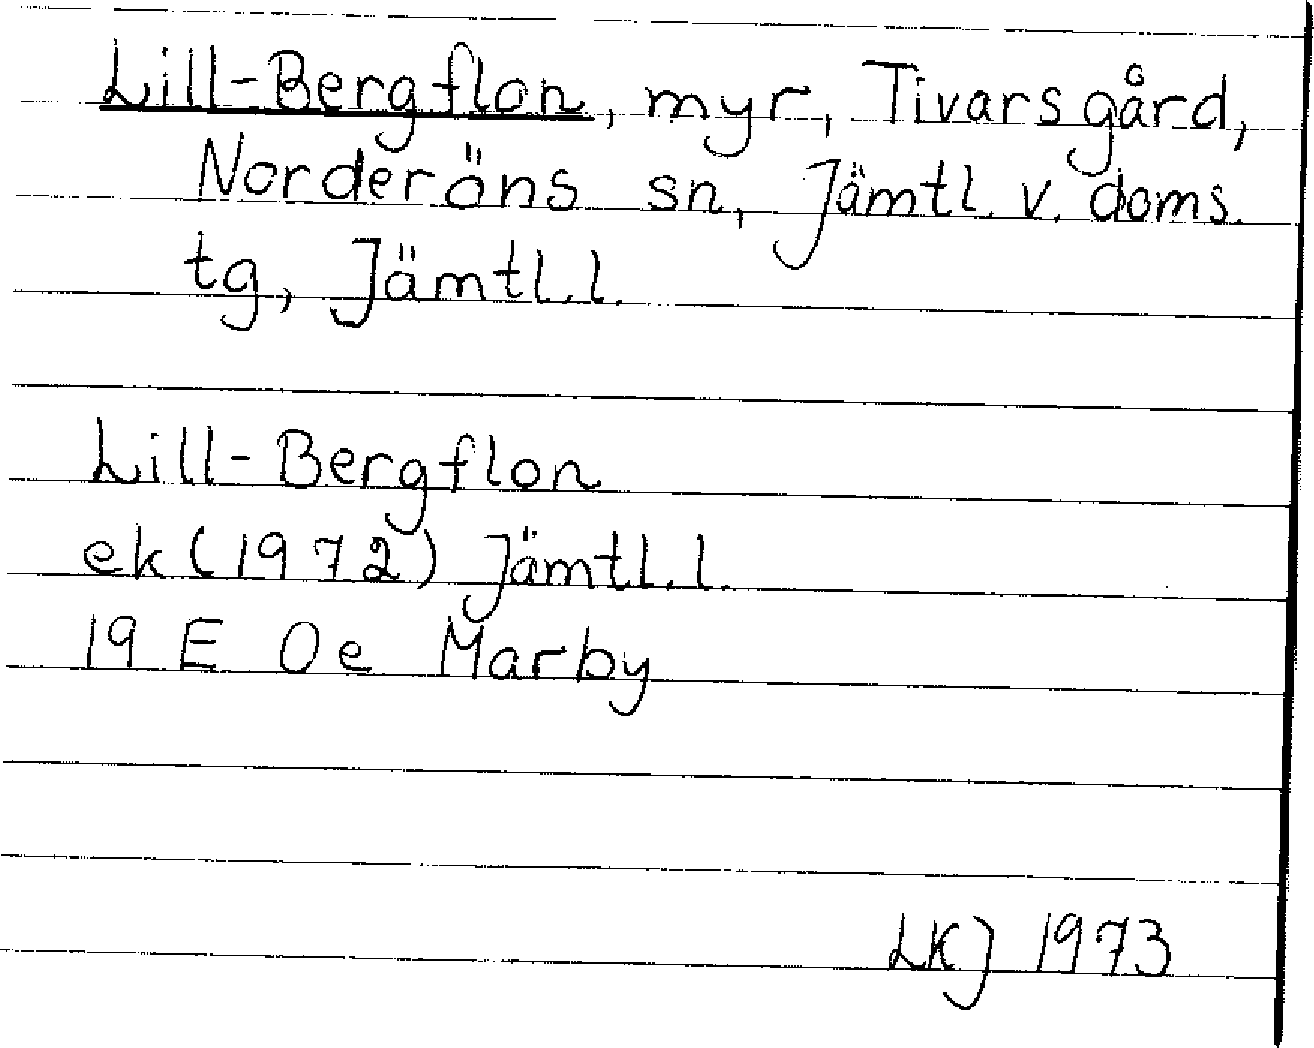 Lill-Bergflon, myr, Tivarsgård,
Norderöns sn, Jämtl. v. doms.
tg, Jämtl.l.
Lill-Bergflon
ek (1972) Jämtl.l.
19 E 0e Marby
LKJ 1973